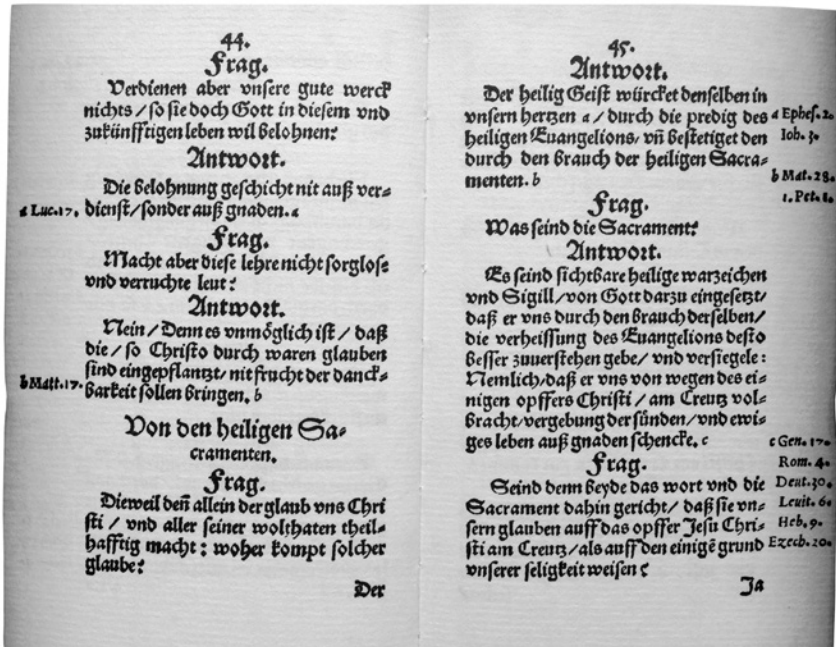 44.
Frag.
Verdienen aber vnsere gute werck
nichts / so sie doch Gott in diesem vnd
zukünfftigen leben wil belohnen?
Antwort.
Die belohnung geschicht nit auß ver⸗
a Luc. 17. dienst / sonder auß gnaden. a
Frag.
Macht aber diese lehre nicht sorglose
vnd verruchte leut?
Antwort.
Nein / Denn es vnmöglich ist / daß
die / so Christo durch waren glauben
sind eingepflantzt / nit frucht der danck⸗
b Matt. 17. barkeit sollen bringen. b
Von den heiligen Sa⸗
cramenten.
Frag.
Dieweil deñ allein der glaub vns Chri
sti / vnd aller seiner wolthaten theil⸗
hafftig macht : woher kompt solcher
glaube?
Der
45.
Antwort.
Der heilig Geist würcket denselben in
vnsern hertzen a / durch die predig des a Ephes. 2.
heiligen Euangelions, vñ bestetiget den Ioh. 3.
durch den brauch der heiligen Sacra⸗
menten. b b Mat. 28.
1. Pet. 1.
Frag.
Was seind die Sacrament?
Antwort.
Es seind sichtbare heilige warzeichen
vnd Sigill / von Gott darzu eingesetzt /
daß er vns durch den brauch derselben /
die verheissung des Euangelions desto
besser zuuerstehen gebe / vnd versiegele :
Nemlich / daß er vns von wegen des ei⸗
nigen opffers Christi / am Creutz vol⸗
bracht / vergebung der sünden / vnd ewi⸗
ges leben auß gnaden schencke. c c Gen. 17.
Frag. Rom. 4.
Seind denn beyde das wort vnd die Deut. 30.
Sacrament dahin gericht / daß sie vn⸗ Leuit. 6.
sern glauben auff das opffer Jesu Chri⸗ Heb. 9.
sti am Creutz / als auff den einigẽ grund Ezech. 20.
vnserer seligkeit weisen?
Ja